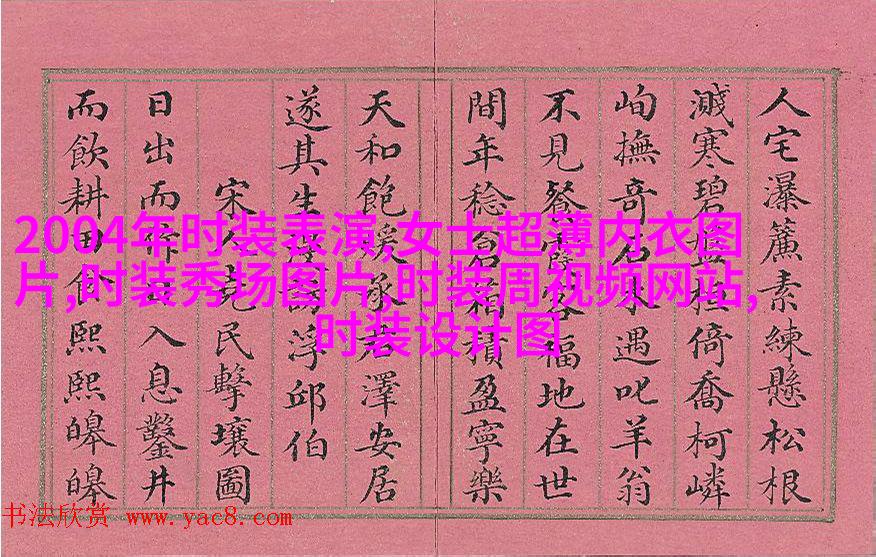 人宅瀑簾素練懸松根
濺寒碧盤桓倚喬柯嶙
峋撫奇石遇叱羊翁
不見餐霞客福地在世
間年稔倉箱積盈寧樂
天和飽煖承君澤安居
遂其生浮邱伯
宋人堯民擊壤圖
日出而作日入息鑿井
而飲耕田食熙熙皞皞
2004年时装表演,女士超薄内衣图
片,时装秀场图片,时装周视频网站,
时装设计图
书法欣赏 www.yac8.com